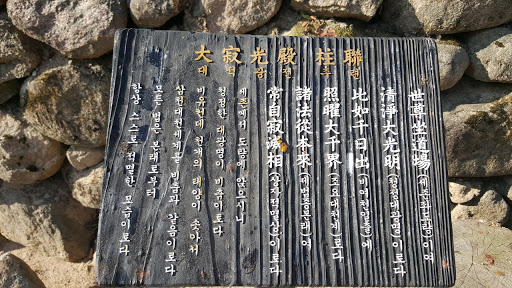 大寂光殿 柱聯
대적광전 주련
世尊坐道場(세존좌도량)이여
清淨大光明(청정대광명)이로다
比如千日出(비여천일출)에
照曜大千界(조요대천계)로다
諸法從本來(제법종본래)여
常自寂滅相(상자적멸상)이로다
세존께서 도량에 앉으시니
청정한 대광명이 비춤이로다
비유컨대 천개의 태양이 솟아서
삼천대천세계를 비춤과 같음이로다
모든 법은 본래로부터
항상 스스로 적멸한 모습이로다